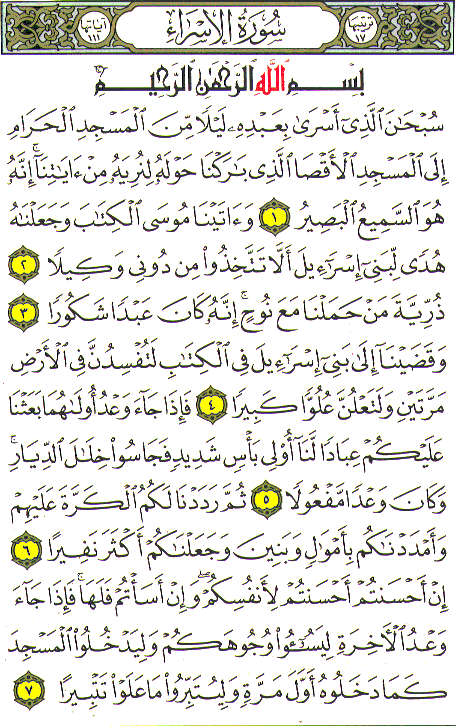 ترتيبها ١٧ سُورَةُ الإِسْرَاءِ آياتها ١١١
بِسْمِ ٱللَّهِ ٱلرَّحْمَٰنِ ٱلرَّحِيمِ
سُبْحَٰنَ ٱلَّذِىٓ أَسْرَىٰ بِعَبْدِهِۦ لَيْلًا مِّنَ ٱلْمَسْجِدِ ٱلْحَرَامِ
إِلَى ٱلْمَسْجِدِ ٱلْأَقْصَا ٱلَّذِى بَٰرَكْنَا حَوْلَهُۥ لِنُرِيَهُۥ مِنْ ءَايَٰتِنَآ ۚ إِنَّهُۥ
هُوَ ٱلسَّمِيعُ ٱلْبَصِيرُ ١ وَءَاتَيْنَا مُوسَى ٱلْكِتَٰبَ وَجَعَلْنَٰهُ
هُدًى لِّبَنِىٓ إِسْرَٰٓءِيلَ أَلَّا تَتَّخِذُوا۟ مِن دُونِى وَكِيلًا ٢
ذُرِّيَّةَ مَنْ حَمَلْنَا مَعَ نُوحٍ ۚ إِنَّهُۥ كَانَ عَبْدًا شَكُورًا ٣
وَقَضَيْنَآ إِلَىٰ بَنِىٓ إِسْرَٰٓءِيلَ فِى ٱلْكِتَٰبِ لَتُفْسِدُنَّ فِى ٱلْأَرْضِ
مَرَّتَيْنِ وَلَتَعْلُنَّ عُلُوًّا كَبِيرًا ٤ فَإِذَا جَآءَ وَعْدُ أُولَىٰهُمَا بَعَثْنَا
عَلَيْكُمْ عِبَادًا لَّنَآ أُو۟لِى بَأْسٍ شَدِيدٍ فَجَاسُوا۟ خِلَٰلَ ٱلدِّيَارِ ۚ
وَكَانَ وَعْدًا مَّفْعُولًا ٥ ثُمَّ رَدَدْنَا لَكُمُ ٱلْكَرَّةَ عَلَيْهِمْ
وَأَمْدَدْنَٰكُم بِأَمْوَٰلٍ وَبَنِينَ وَجَعَلْنَٰكُمْ أَكْثَرَ نَفِيرًا ٦
إِنْ أَحْسَنتُمْ أَحْسَنتُمْ لِأَنفُسِكُمْ ۖ وَإِنْ أَسَأْتُمْ فَلَهَا ۚ فَإِذَا جَآءَ
وَعْدُ ٱلْءَاخِرَةِ لِيَسُۥٓـُٔوا۟ وُجُوهَكُمْ وَلِيَدْخُلُوا۟ ٱلْمَسْجِدَ
كَمَا دَخَلُوهُ أَوَّلَ مَرَّةٍ وَلِيُتَبِّرُوا۟ مَا عَلَوْا۟ تَتْبِيرًا ٧